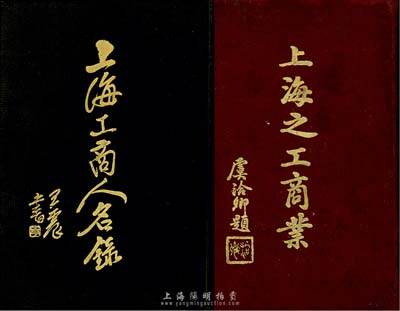 上海工商人名錄
王震
上海之工商業
虞洽卿題
上海陽明拍賣
www.yangmingauction.com